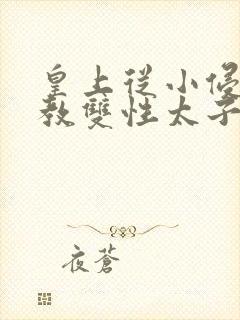 皇上從小侵
教雙性太子
夜蒼